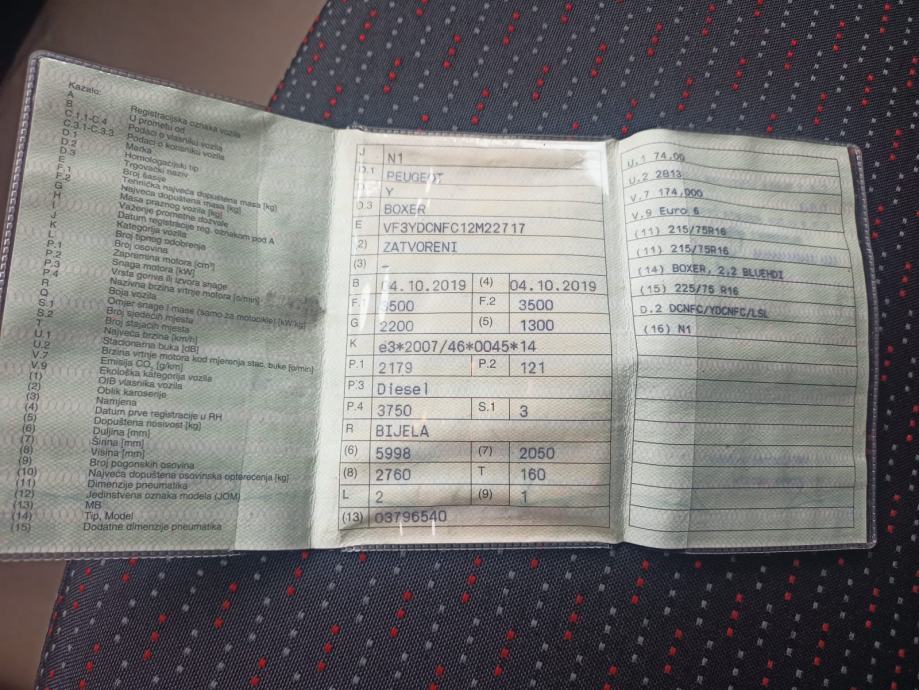 Kazalo:
A Registracijska oznaka vozila
B U prometu od
C.1.1-C.4 Podaci o vlasniku vozila
C.3.1-C.3.3 Podaci o korisniku vozila
D.1 Marka
D.2 Homologacijski tip
D.3 Trgovački naziv
E Broj šasije
F.1 Tehnička najveća dopuštena masa [kg]
F.2 Najveća dopuštena masa [kg]
G Masa praznog vozila [kg]
H Važenje prometne dozvole
I Datum registracije reg. oznakom pod A
J Kategorija vozila
K Broj tipnog odobrenja
L Broj osovina
P.1 Zapremina motora [cm³]
P.2 Snaga motora [kW]
P.3 Vrsta goriva ili izvora snage
P.4 Nazivna brzina vrtnje motora [o/min]
R Boja vozila
Q Omjer snage i mase (samo za motocikle) [kW/kg]
S.1 Broj sjedećih mjesta
S.2 Broj stajaćih mjesta
T Najveća brzina [km/h]
U.1 Stacionarna buka [dB]
U.2 Brzina vrtnje motora kod mjerenja stac. buke [o/min]
V.7 Emisija CO₂ [g/km]
V.9 Ekološka kategorija vozila
(1) OIB vlasnika vozila
(2) Oblik karoserije
(3) Namjena
(4) Datum prve registracije u RH
(5) Dopuštena nosivost [kg]
(6) Duljina [mm]
(7) Širina [mm]
(8) Visina [mm]
(9) Broj pogonskih osovina
(10) Najveća dopuštena osovinska opterećenja [kg]
(11) Dimenzije pneumatika
(12) Jedinstvena oznaka modela (JOM)
(13) MB
(14) Tip, Model
(15) Dodatne dimenzije pneumatika
J N1
D.1 PEUGEOT
Y
D.3 BOXER
E VF3YDCNFC12M22717
2) ZATVORENI
(3) –
B 04.10.2019 (4) 04.10.2019
F.1 3500 F.2 3500
G 2200 (5) 1300
K e3*2007/46*0045*14
P.1 2179 P.2 121
P.3 Diesel
P.4 3750 S.1 3
R BIJELA
(6) 5998 (7) 2050
(8) 2760 T 160
L 2 (9) 1
(13) 03796540
U.1 74,00
U.2 2813
V.7 174,000
V.9 Euro 6
(11) 215/75R16
(11) 215/75R16
(14) BOXER, 2,2 BLUEHDI
(15) 225/75 R16
D.2 DCNFC/YDCNFC/LSL
(16) N1